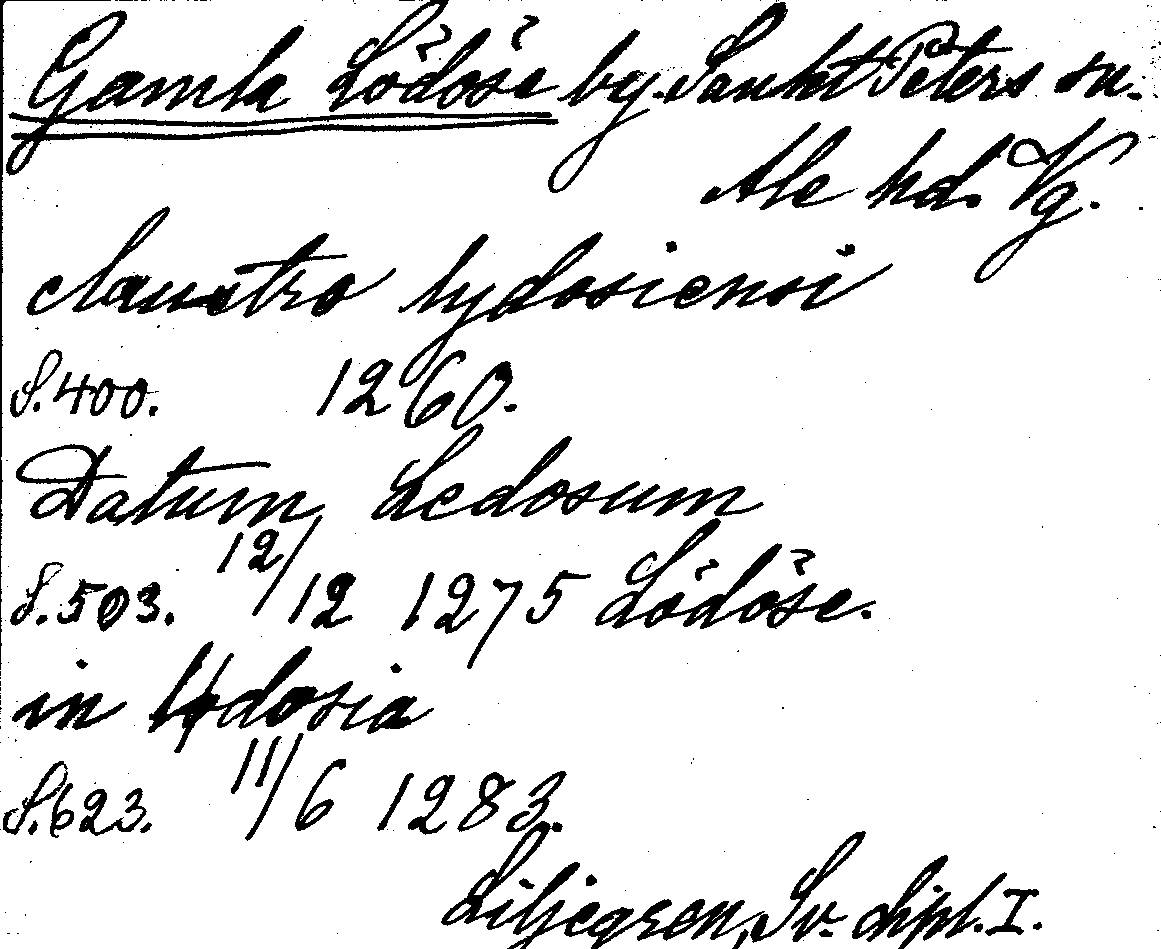 Gamla Lödöse by. Sankt Peters sn.
Ale hd. Vg.
claustro lydosiensi
S. 400. 1260.
Datum Ledosum
S. 503. 12/12 1275 Lödöse.
in lydosia
S. 623. 11/6 1283.
Liljegren, Sv. dipl. I.